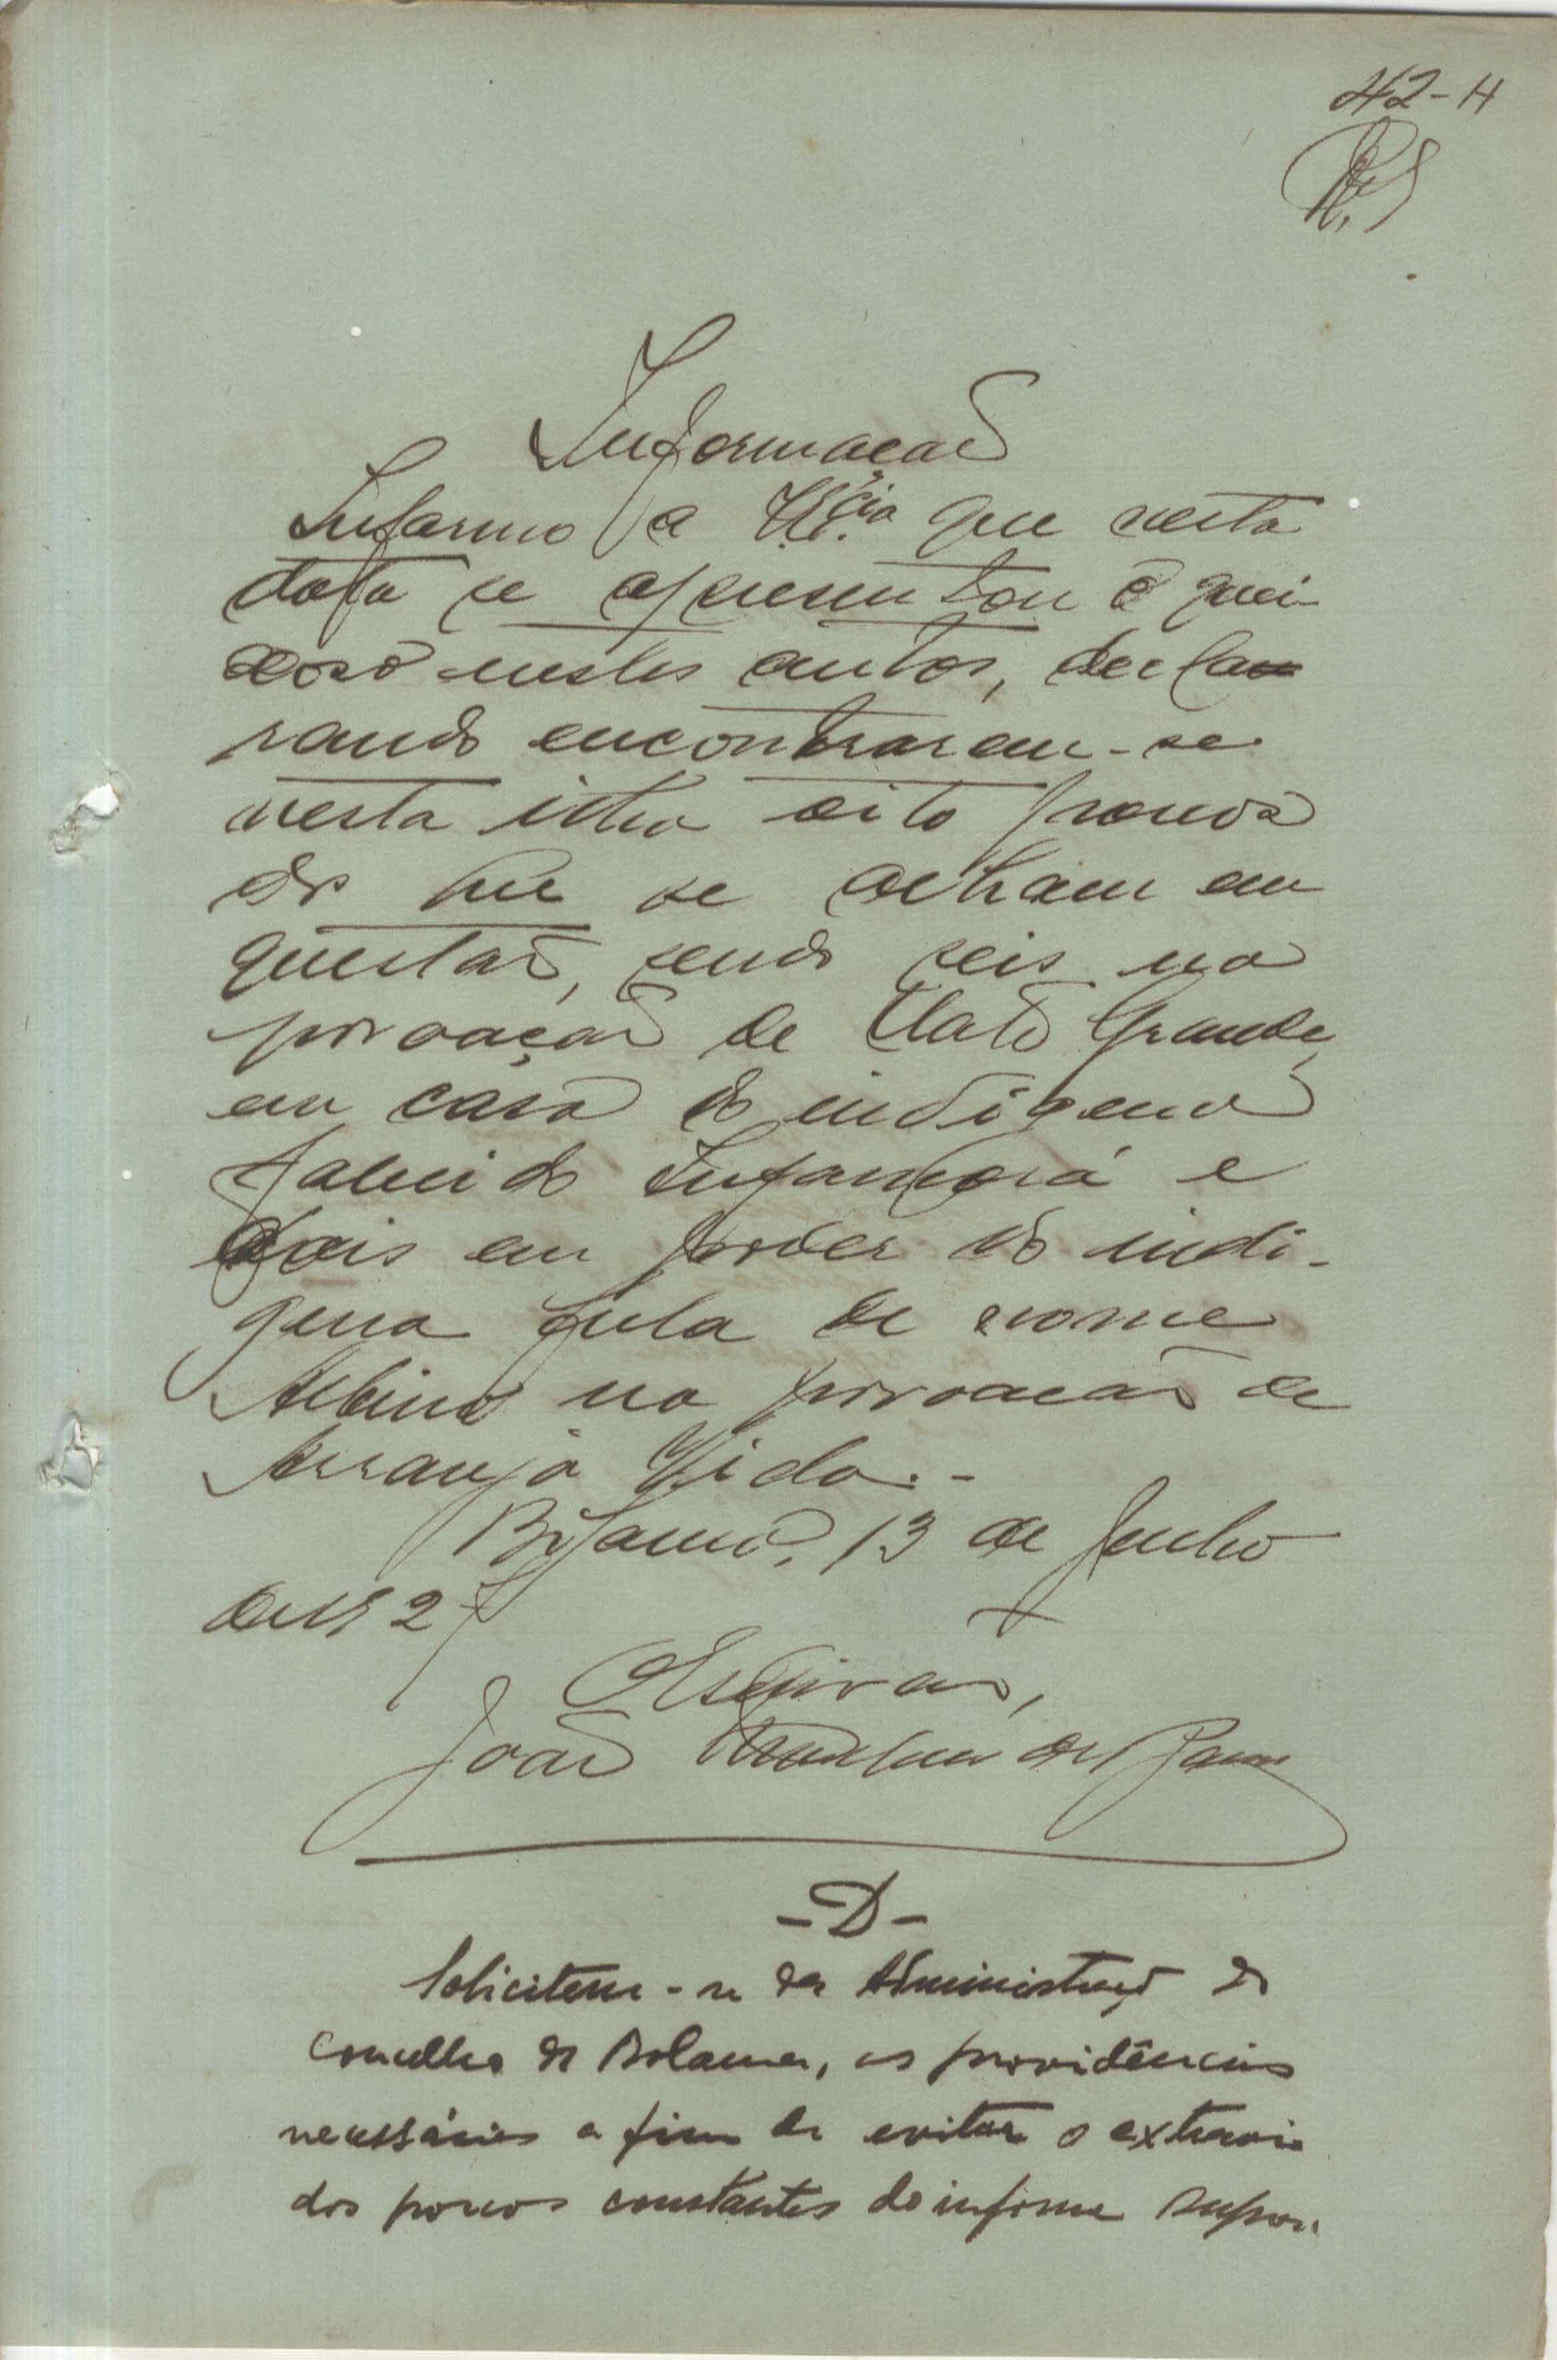 42-H
Informação
Informo a V. Ex.cia que nesta
data se apresentou o quei-
xoso nestes autos, decla
rando encontrarem-se
nesta ilha oito porcos
dos que se acham em
questão, sendo seis na
povoação de Mato Grande,
em casa do indigena
e
dois em poder do indi-
gena fula de nome
Albino na povoação de
Arranja Vida.-
13 de Julho
de 1927
O Escrivão,
João de
-D-
Solicitem-se da Administração do
Concelho de Bolama, as providências
necessárias a fim de evitar o extravio
dos porcos constantes do informe supra.